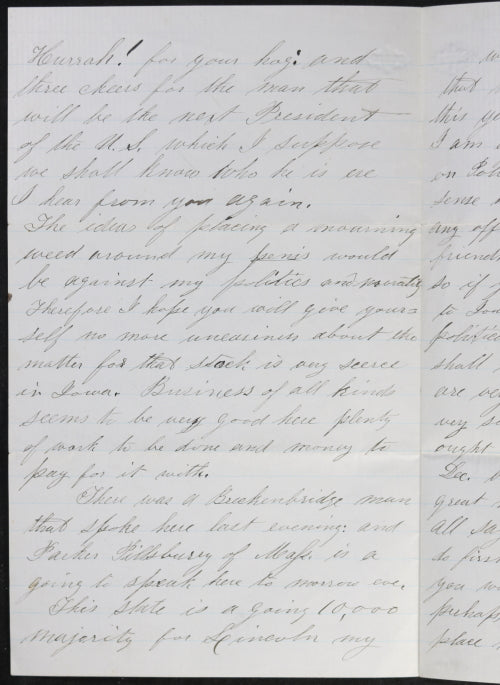 Hurrah! for your hog: and
three cheers for the man that
will be the next President
of the U.S. which I suppose
we shall know who he is ere
I hear from you again.
The ideas of placing a mourning
weed around my penis would
be against my politics and morality
Therefore I hope you will give your=
self no more uneasiness about the
matter for that stock is very scerce
in Iowa. Business of all kinds
seems to be very good here plenty
of work to be done and money to
pay for it with.
There was a Breckenbridge man
that spoke here last evening: and
Parker Pillsburey of Mass. is a
going to speak here to morrow eve.
This state is a going 10,000
majority for Lincoln my
w
that
this ye
I am
on Pol
sense
any off
friend
so if y
to Iow
politic
shall
are ve
very s
ought
Dec.
great
all sa
to firs
you w
perhap
place